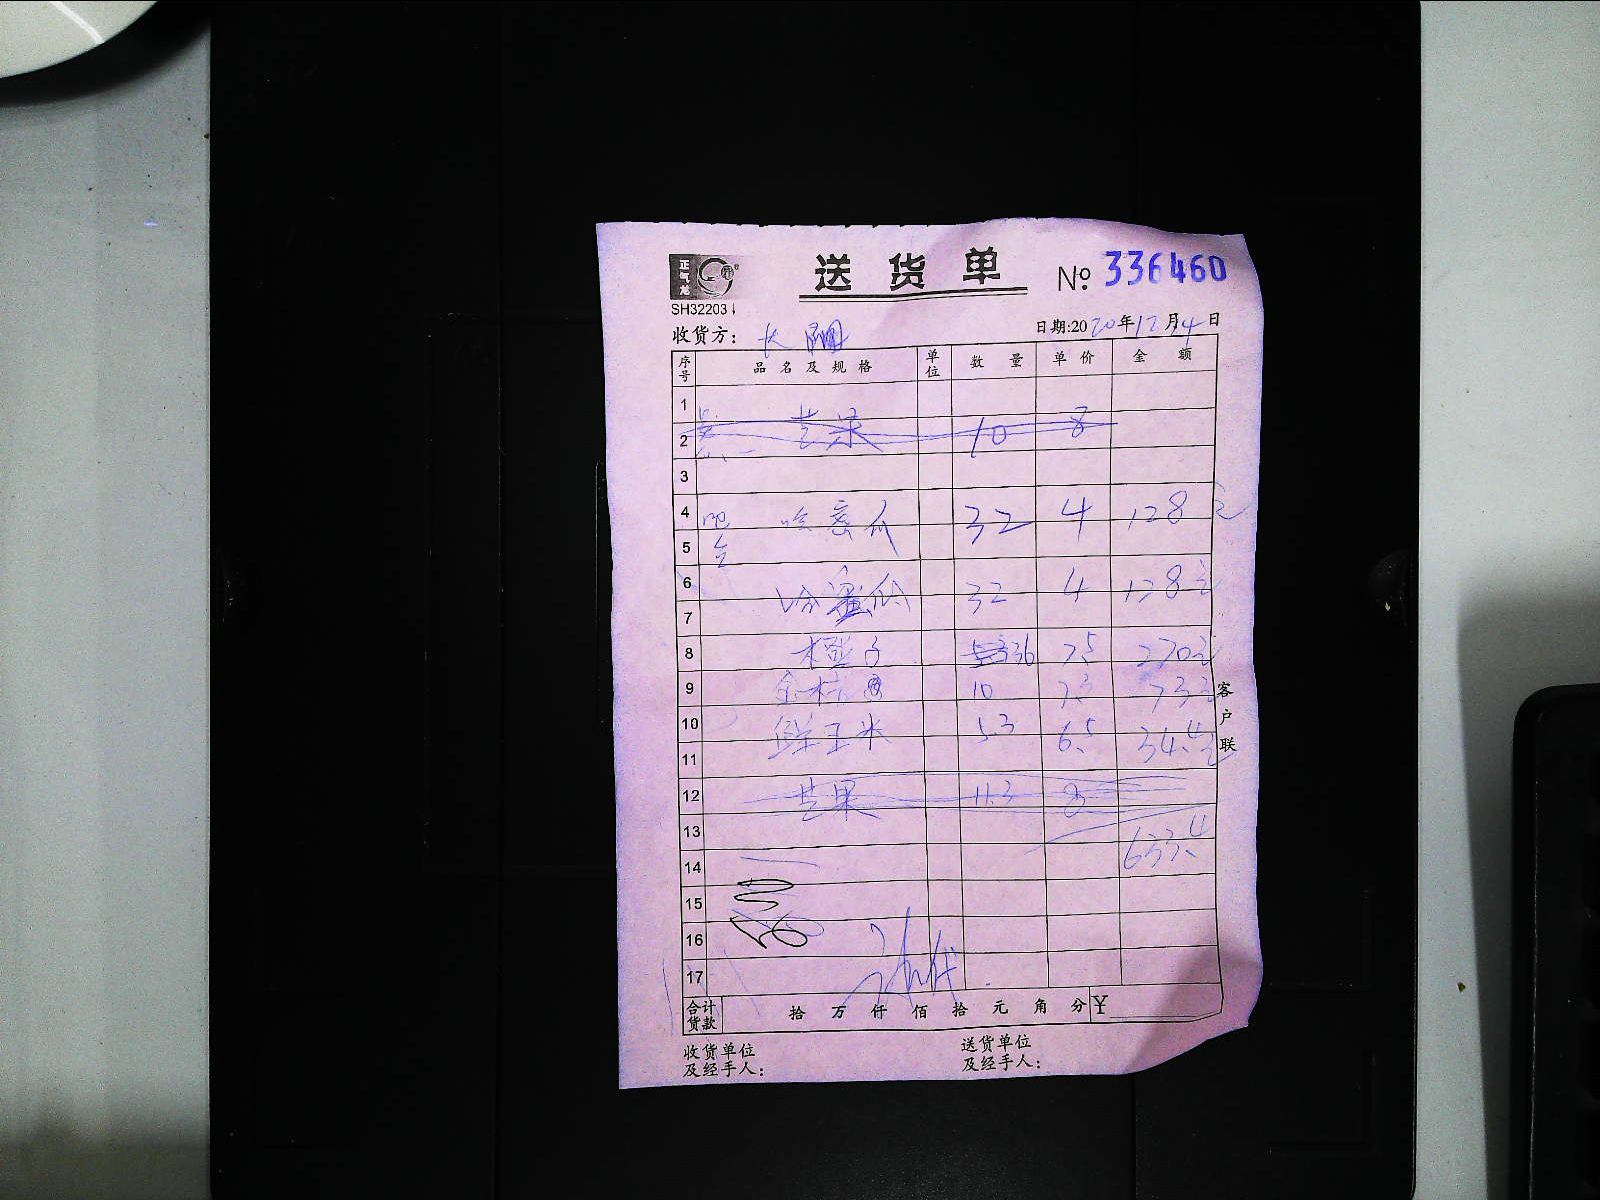 正气龙
送货单 № 336460
SH32203
收货方: 大阳 日期:2020年12月4日
序号 品名及规格 单位 数量 单价 金额
1
2 苹果 10 8
3
4 吧 哈蜜瓜 32 4 128元
5 台
6 哈蜜瓜 32 4 128元
7
8 橙子 36 7.5 270元
9 金桔 10 7.3 73元
10 鲜玉米 5.3 6.5 34.4元
11
12 苹果 11.3 8
13 633.4
14
15
16
17
合计货款 拾 万 仟 佰 拾 元 角 分 ¥
收货单位 送货单位
及经手人: 及经手人:
客户联